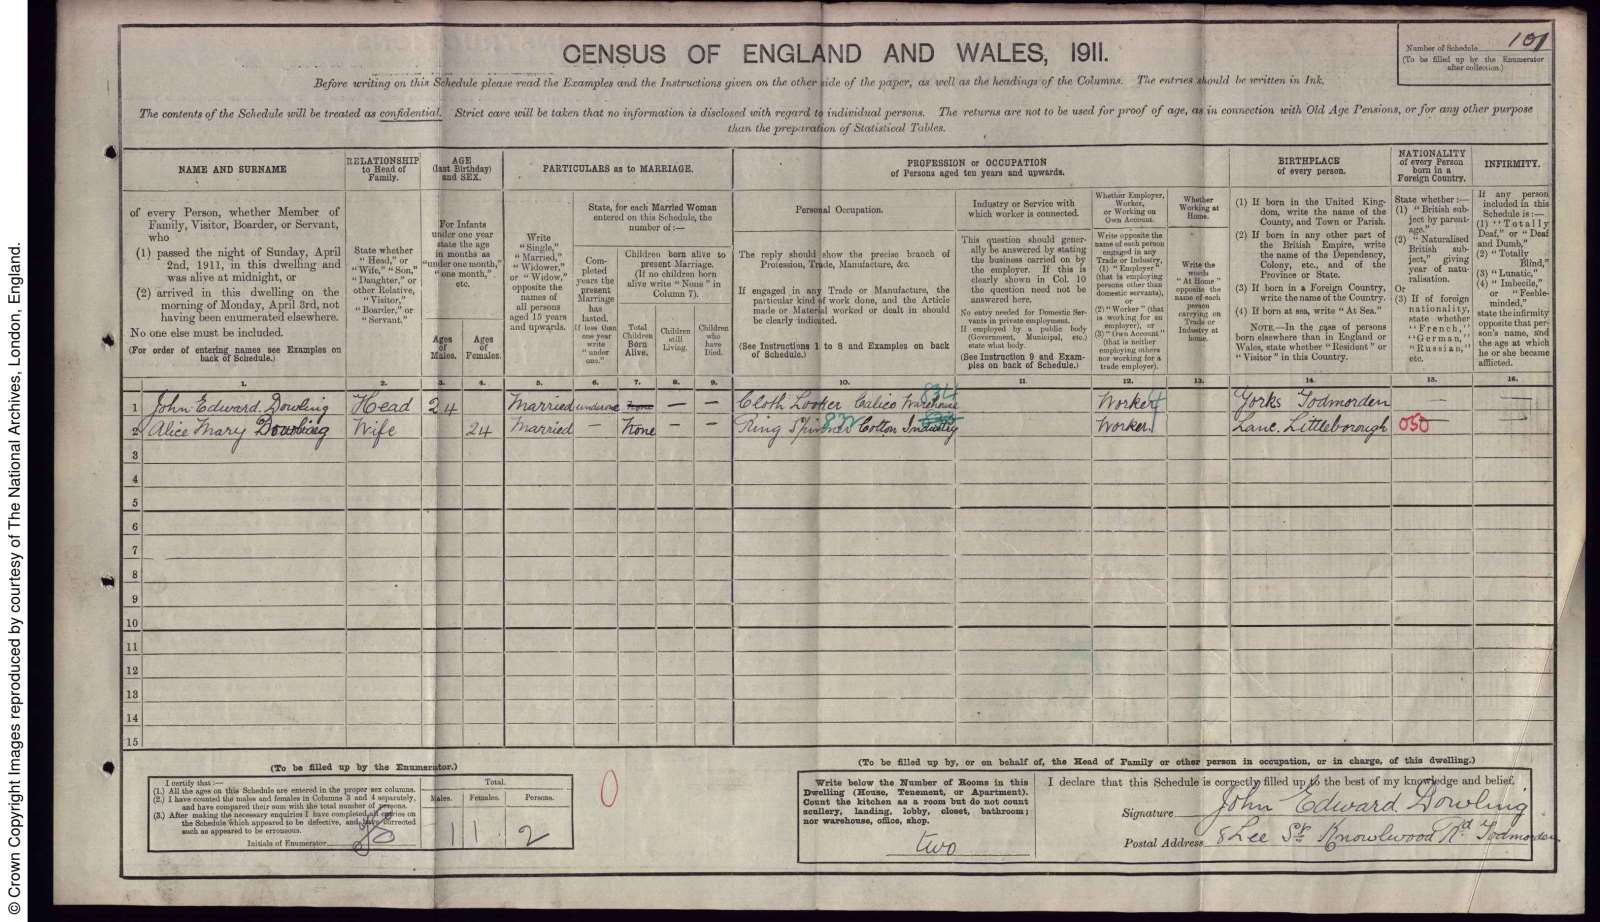 © Crown Copyright Images reproduced by courtesy of The National Archives, London, England.
CENSUS OF ENGLAND AND WALES, 1911.
Number of Schedule 101
(To be filled up by the Enumerator
after collection.)
Before writing on this Schedule please read the Examples and the Instructions given on the other side of the paper, as well as the headings of the Columns. The entries should be written in Ink.
The contents of the Schedule will be treated as confidential. Strict care will be taken that no information is disclosed with regard to individual persons. The returns are not to be used for proof of age, as in connection with Old Age Pensions, or for any other purpose
than the preparation of Statistical Tables.
NAME AND SURNAME
of every Person, whether Member of
Family, Visitor, Boarder, or Servant,
who
(1) passed the night of Sunday, April
2nd, 1911, in this dwelling and
was alive at midnight, or
(2) arrived in this dwelling on the
morning of Monday, April 3rd, not
having been enumerated elsewhere.
No one else must be included.
(For order of entering names see Examples on
back of Schedule.)
RELATIONSHIP
to Head of
Family.
State whether
"Head," or
"Wife," "Son,"
"Daughter," or
other Relative,
"Visitor,"
"Boarder," or
"Servant."
AGE
(last Birthday)
and SEX.
For Infants
under one year
state the age
in months as
"under one month,"
"one month,"
etc.
Ages
of
Males.
Ages
of
Females.
PARTICULARS as to MARRIAGE.
Write
"Single,"
"Married,"
"Widower,"
or "Widow,"
opposite the
names of
all persons
aged 15 years
and upwards.
State, for each Married Woman
entered on this Schedule, the
number of :—
Com-
pleted
years the
present
Marriage
has
lasted.
If less than
one year
write
"under
one."
Children born alive to
present Marriage.
(If no children born
alive write "None" in
Column 7).
Total
Children
Born
Alive.
Children
still
Living.
Children
who
have
Died.
PROFESSION or OCCUPATION
of Persons aged ten years and upwards.
Personal Occupation.
The reply should show the precise branch of
Profession, Trade, Manufacture, &c.
If engaged in any Trade or Manufacture, the
particular kind of work done, and the Article
made or Material worked or dealt in should
be clearly indicated.
(See Instructions 1 to 8 and Examples on back
of Schedule.)
Industry or Service with
which worker is connected.
This question should gener-
ally be answered by stating
the business carried on by
the employer. If this is
clearly shown in Col. 10
the question need not be
answered here.
No entry needed for Domestic Ser-
vants in private employment.
If employed by a public body
(Government, Municipal, etc.)
state what body.
(See Instruction 9 and Exam-
ples on back of Schedule.)
Whether Employer,
Worker,
or Working on
Own Account.
Write opposite the
name of each person
engaged in any
Trade or Industry,
(1) "Employer"
(that is employing
persons other than
domestic servants),
or
(2) "Worker" (that
is working for an
employer), or
(3) "Own Account"
(that is neither
employing others
nor working for a
trade employer).
Whether
Working at
Home.
Write the
words
"At Home"
opposite the
name of each
person
carrying on
Trade or
Industry at
home.
BIRTHPLACE
of every person.
(1) If born in the United King-
dom, write the name of the
County, and Town or Parish.
(2) If born in any other part of
the British Empire, write
the name of the Dependency,
Colony, etc., and of the
Province or State.
(3) If born in a Foreign Country,
write the name of the Country.
(4) If born at sea, write "At Sea."
NOTE.—In the case of persons
born elsewhere than in England or
Wales, state whether "Resident" or
"Visitor" in this Country.
NATIONALITY
of every Person
born in a
Foreign Country.
State whether :—
(1) "British sub-
ject by parent-
age."
(2) "Naturalised
British sub-
ject," giving
year of natu-
ralisation.
Or
(3) If of foreign
nationality,
state whether
"French,"
"German,"
"Russian,"
etc.
INFIRMITY.
If any person
included in this
Schedule is :—
(1) "Totally
Deaf," or "Deaf
and Dumb,"
(2) "Totally
Blind,"
(3) "Lunatic,"
(4) "Imbecile,"
or "Feeble-
minded,"
state the infirmity
opposite that per-
son's name, and
the age at which
he or she became
afflicted.
1. 2. 3. 4. 5. 6. 7. 8. 9. 10. 11. 12. 13. 14. 15. 16.
1 John Edward Dowling Head 24 Married under one None — — Cloth Looker Calico Warehouse 834 Worker Yorks Todmorden —
2 Alice Mary Dowling Wife 24 Married — None — — Ring Spinner Cotton Industry Worker Lanc. Littleborough 050
3
4
5
6
7
8
9
10
11
12
13
14
15
(To be filled up by the Enumerator.)
I certify that :—
(1.) All the ages on this Schedule are entered in the proper sex columns.
(2.) I have counted the males and females in Columns 3 and 4 separately,
and have compared their sum with the total number of persons.
(3.) After making the necessary enquiries I have completed all entries on
the Schedule which appeared to be defective, and have corrected
such as appeared to be erroneous.
Initials of Enumerator
Total.
Males. Females. Persons.
1 1 2
0
(To be filled up by, or on behalf of, the Head of Family or other person in occupation, or in charge, of this dwelling.)
Write below the Number of Rooms in this
Dwelling (House, Tenement, or Apartment).
Count the kitchen as a room but do not count
scullery, landing, lobby, closet, bathroom;
nor warehouse, office, shop.
two
I declare that this Schedule is correctly filled up to the best of my knowledge and belief.
Signature John Edward Dowling
Postal Address 8 Lee St Knowlwood Rd Todmorden